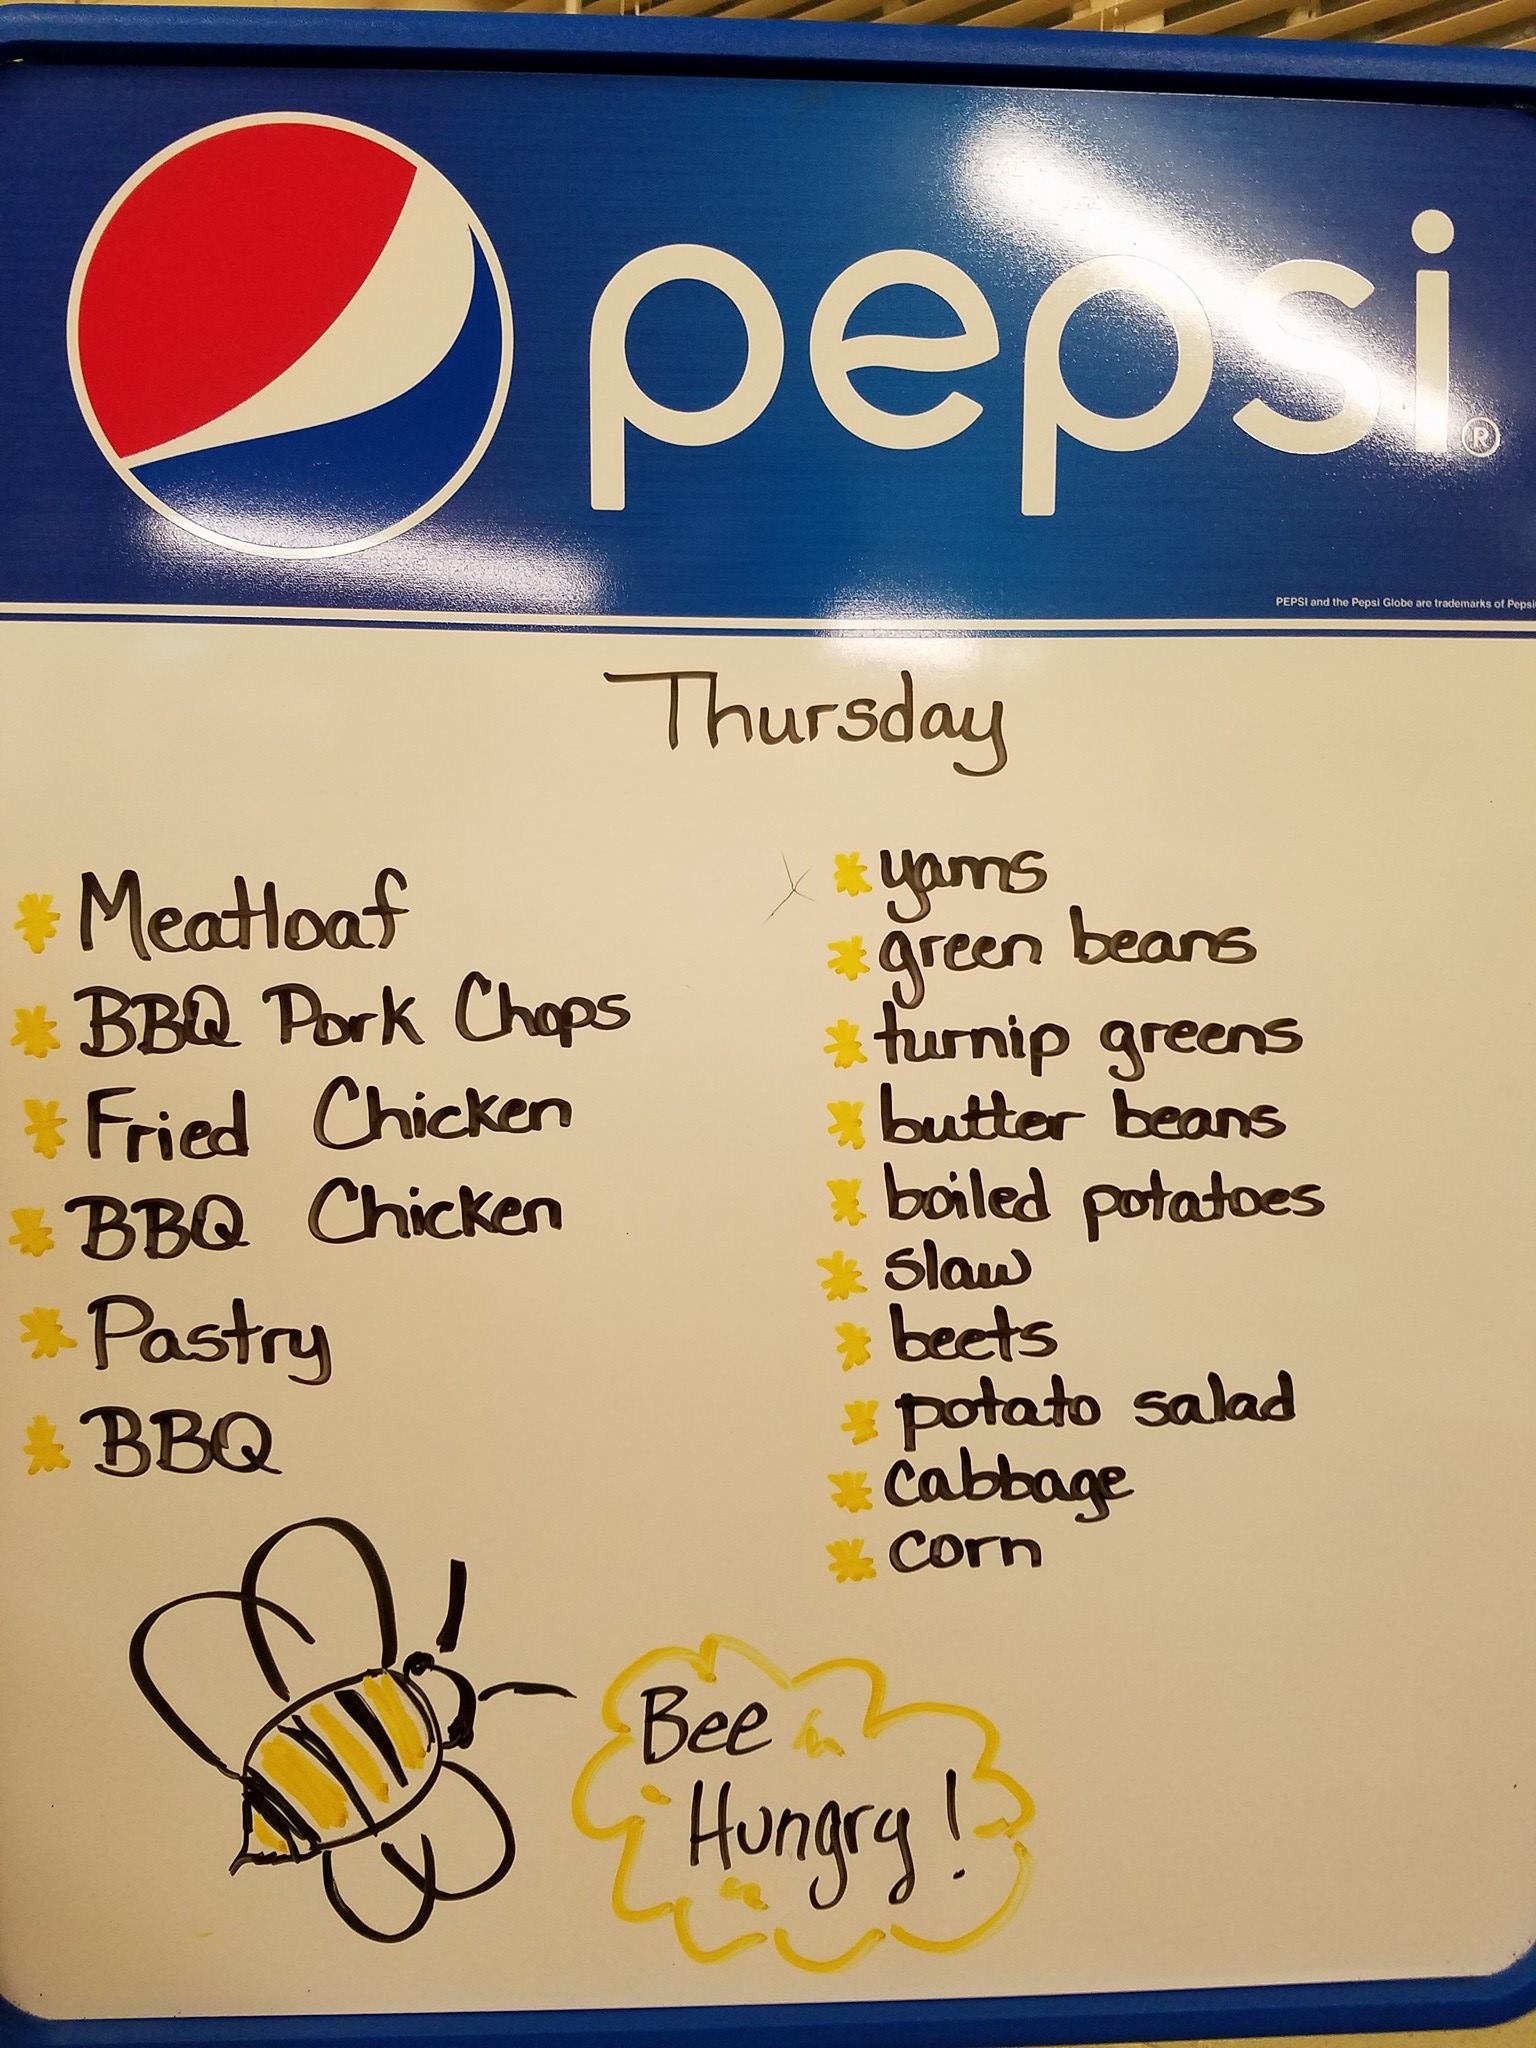 pepsi®
PEPSI and the Pepsi Globe are trademarks of Pepsi
Thursday
* Meatloaf
* BBQ Pork Chops
* Fried Chicken
* BBQ Chicken
* Pastry
* BBQ
* yams
* green beans
* turnip greens
* butter beans
* boiled potatoes
* slaw
* beets
* potato salad
* cabbage
* corn
Bee
Hungry!